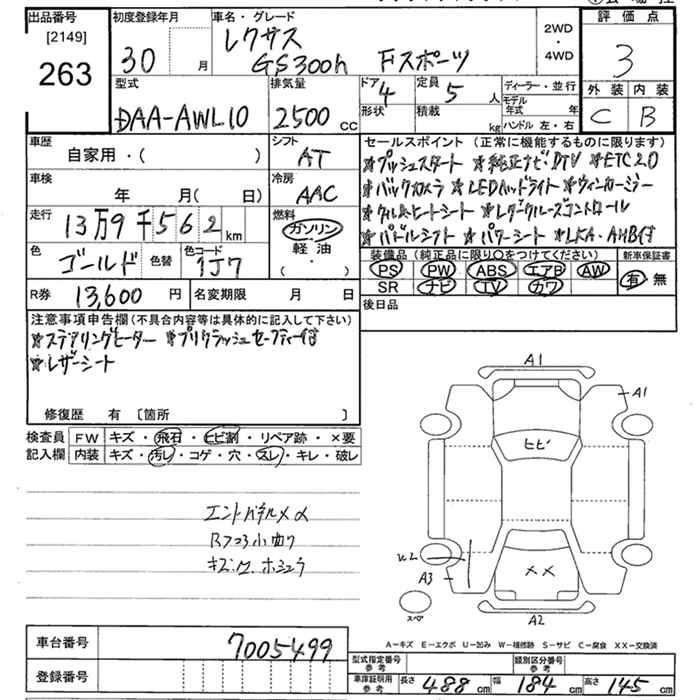 出品番号 初度登録年月 車名・グレード 2WD・4WD 評価点
[2149]
263
30 月
レクサス
GS300h Fスポーツ
3
型式 排気量 ドア 定員 ディーラー・並行 外装 内装
DAA-AWL10 2500 CC 4 5 人 モデル年式 年 C B
形状 積載 kg ハンドル 左・右
車歴 シフト セールスポイント (正常に機能するものに限ります)
自家用・( ) AT
★プッシュスタート ★純正ナビDTV ★ETC2.0
車検 冷房
★バックカメラ ★LEDヘッドライト ★ウィンカーミラー
年 月(日) AAC
走行 燃料
13万9千562km ガソリン・軽油・( )
★レダクルーズコントロール
★パドルシフト ★パワーシート ★LKA・AHB付
色 色替 色コード
ゴールド 1J7
装備品 (純正品に限り○をつけてください) 新車保証書
PS PW ABS エアB AW 有・無
SR ナビ TV カワ
R券 13,600 円 名変期限 月 日 後日品
注意事項申告欄(不具合内容等は具体的に記入して下さい)
★ステアリングヒーター ★プリクラッシュセーフティ付
★レザーシート
修復歴 有 [箇所 ]
検査員記入欄 FW キズ・飛石・ヒビ割・リペア跡・×要
内装 キズ・汚レ・コゲ・穴・スレ・キレ・破レ
A1
A1
ヒビ
A3
××
A2
スペア
エンドパネルメα
キズ.
A−キズ E−エクボ U−凹み W−補修跡 S−サビ C−腐食 XX−交換済
車台番号 7005499
登録番号
型式指定番号参考 類別区分番号参考
車庫証明用参考 長さ 488 cm 幅 184 cm 高さ 145 cm